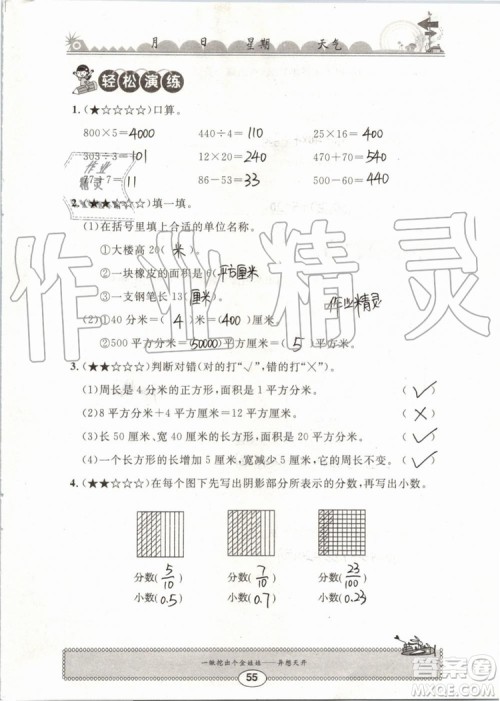 月 日 星期 天气
轻松演练
1.(★☆☆☆☆)口算。
800×5=4000 440÷4=110 25×16=400
303÷3=101 12×20=240 470+70=540
77÷7=11 86-53=33 500-60=440
2.(★★☆☆☆)填一填。
(1)在括号里填上合适的单位名称。
①大楼高20(米)。
②一块橡皮的面积是9(平方厘米)
③一支钢笔长13(厘米)。
作业精灵
(2)①40分米=(4)米=(400)厘米。
②500平方分米=(50000)平方厘米=(5)平方米。
3.(★★☆☆☆)判断对错(对的打"√",错的打"×")。
(1)周长是4分米的正方形,面积是1平方分米。 (√)
(2)8平方分米+4平方厘米=12平方厘米。 (×)
(3)长50厘米、宽40厘米的长方形,面积是20平方分米。 (√)
(4)一个长方形的长增加5厘米,宽减少5厘米,它的周长不变。 (√)
4.(★★☆☆☆)在每个图下先写出阴影部分所表示的分数,再写出小数。
分数(5/10) 分数(7/10) 分数(23/100)
小数(0.5) 小数(0.7) 小数(0.23)
一锹挖出个金娃娃——异想天开
55
作业精灵
答案圈